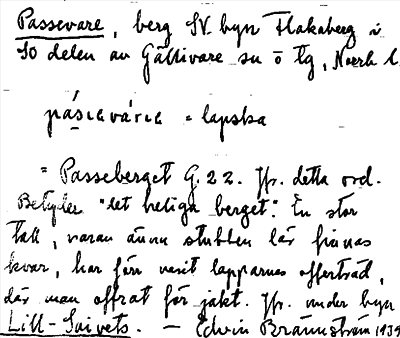 Passevare, berg SV byn Flakaberg i
SO delen av Gällivare sn o tg, Norrb l.
pásịavárịa = lapska
= Passeberget G. 22. Jfr. detta ord.
Betyder "det heliga berget". En stor
tall, varav ännu stubben lär finnas
kvar, har förr varit lapparnas offerträd,
där man offrat för jakt. Jfr. under byn
Lill-Saivets. — Edvin Brännström 1939